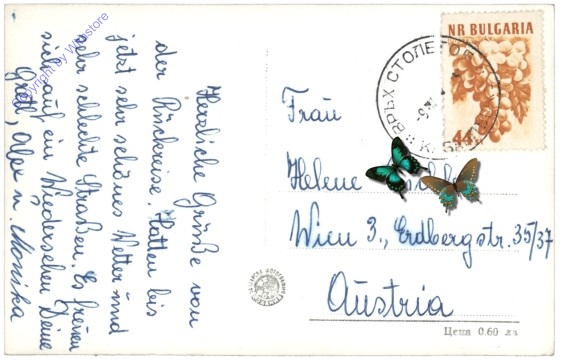 Herzliche Grüße von
der Rückreise. Hatten bis
jetzt sehr schönes Wetter und
sehr schlechte Straßen. Es freuen
sich auf ein Wiedersehen Deine
Gretl, Alex u. Monika
Copyright by
NR BULGARIA
44
ВРЪХ СТОЛЕТОВ
Frau
Helene
Wien 3., Erdbergstr. 35/37
Austria
Цена 0.60 лв